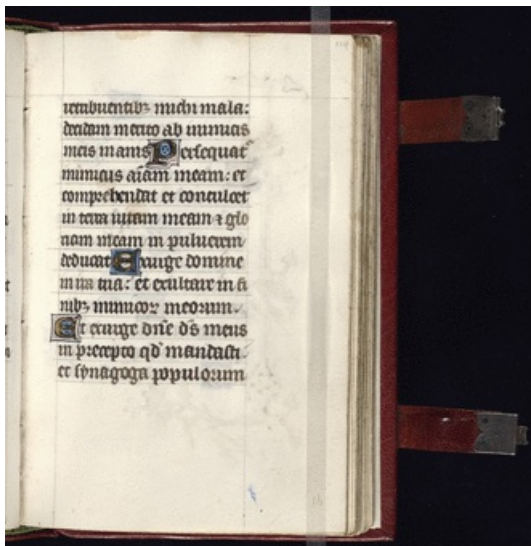 retribuentibꝫ michi mala:
decidam merito ab inimicis
meis inanis Persequat᷑
inimicus aīam meam: et
comprehendat et conculcet
in terra uitam meam ⁊ glo
riam meam in puluerem
deducat Exurge domine
in ira tua: et exaltare in fi
nibꝫ inimicoꝝ meorum.
Et exurge dn̄e dꝰs meus
in precepto qd̕ mandasti:
et synagoga populorum